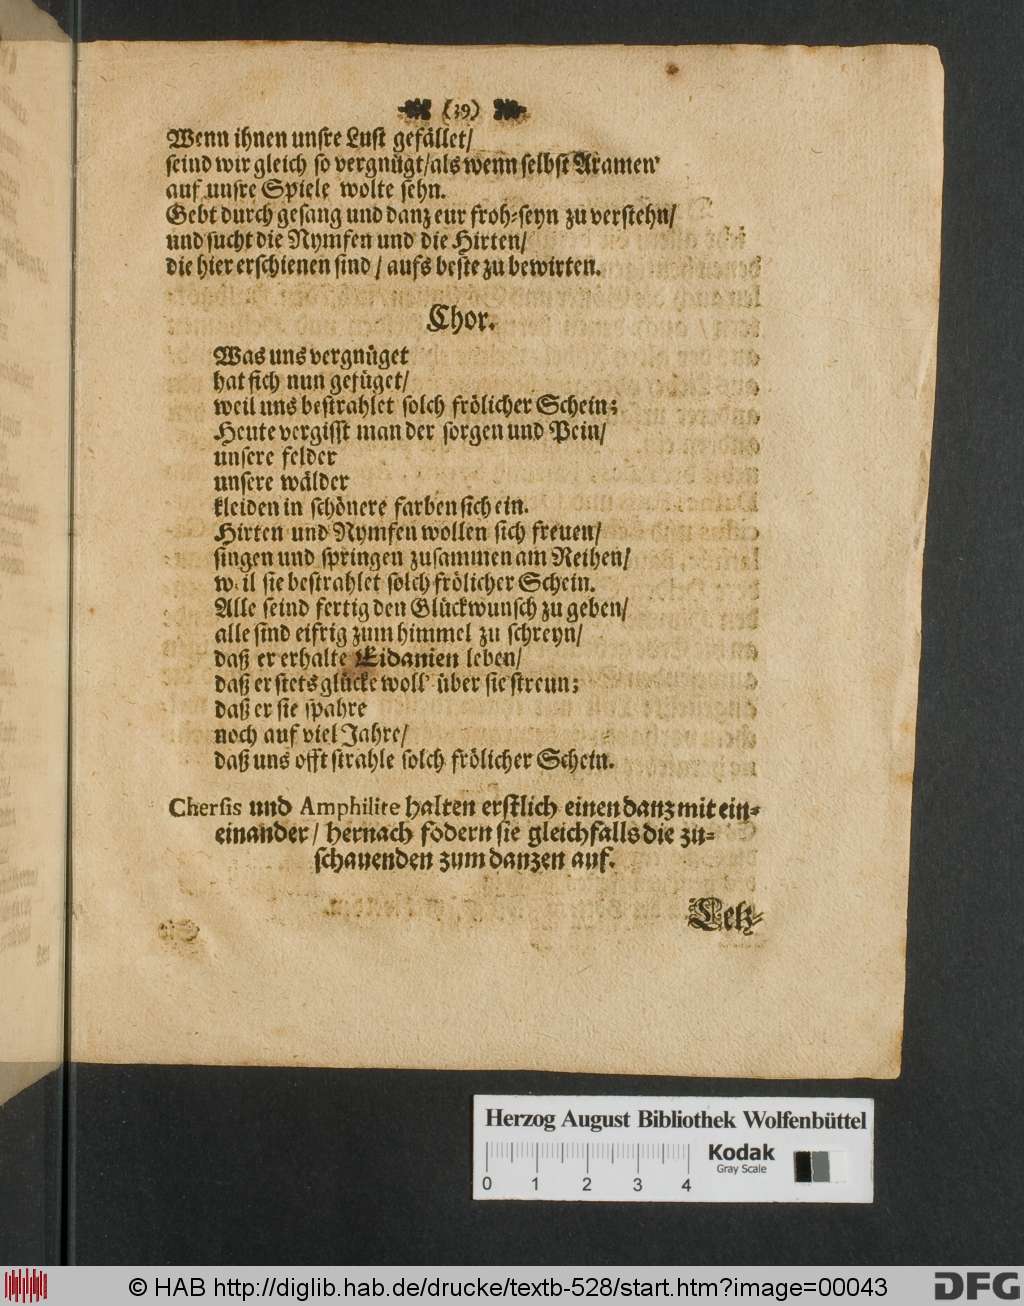 (39)
Wenn ihnen unsre Lust gefället/
seind wir gleich so vergnügt/als wenn selbst Aramen'
auf unsre Spiele wolte sehn.
Gebt durch gesang und danz eur froh-seyn zu verstehn/
und sucht die Nymfen und die Hirten/
die hier erschienen sind / aufs beste zu bewirten.
Chor.
Was uns vergnüget
hat sich nun gefüget/
weil uns bestrahlet solch frölicher Schein;
Heute vergisst man der sorgen und Pein/
unsere felder
unsere wälder
kleiden in schönere farben sich ein.
Hirten und Nymfen wollen sich freuen/
singen und springen zusammen am Reihen/
weil sie bestrahlet solch frölicher Schein.
Alle seind fertig den Glückwunsch zu geben/
alle sind eifrig zum himmel zu schreyn/
daß er erhalte Lidanien leben/
daß er stets glücke woll' über sie streun;
daß er sie spahre
noch auf viel Jahre/
daß uns offt strahle solch frölicher Schein.
Chersis und Amphilite halten erstlich einen danz mit ein-
einander / hernach fodern sie gleichfalls die zu-
schauenden zum danzen auf.
Letz-
Herzog August Bibliothek Wolfenbüttel
Kodak
Gray Scale
0 1 2 3 4
© HAB http://diglib.hab.de/drucke/textb-528/start.htm?image=00043
DFG